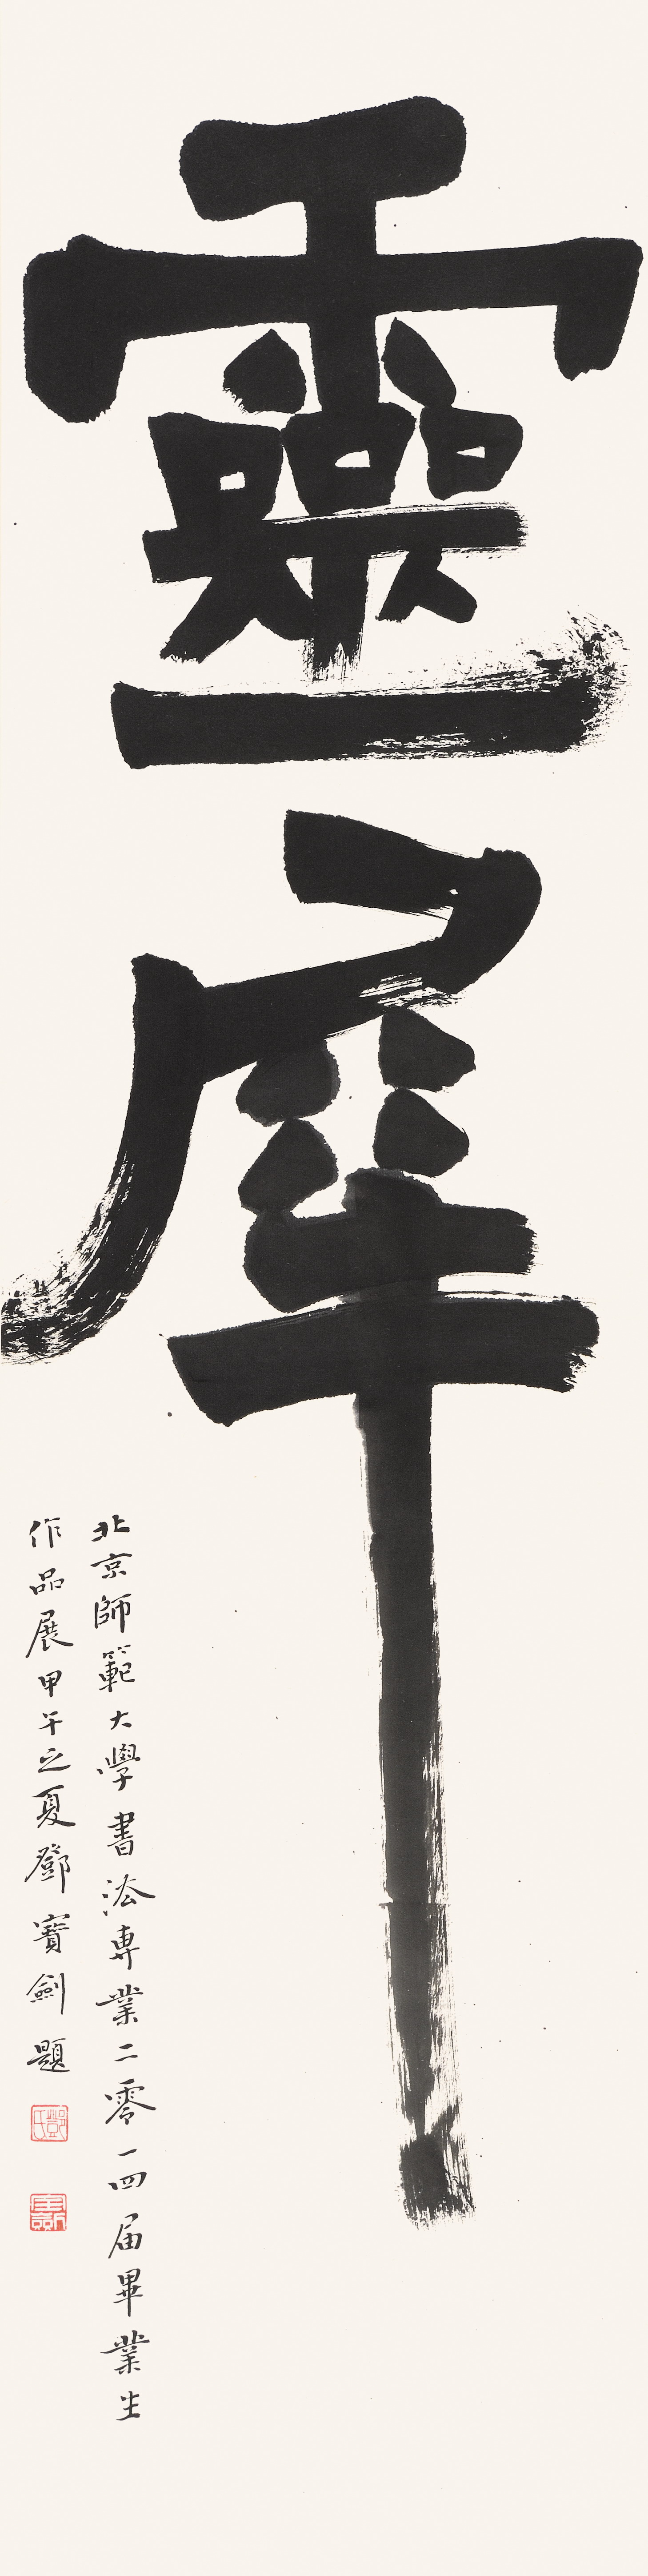 靈犀
北京師範大學書法專業二零一四届畢業生
作品展甲午之夏鄧寶劍題